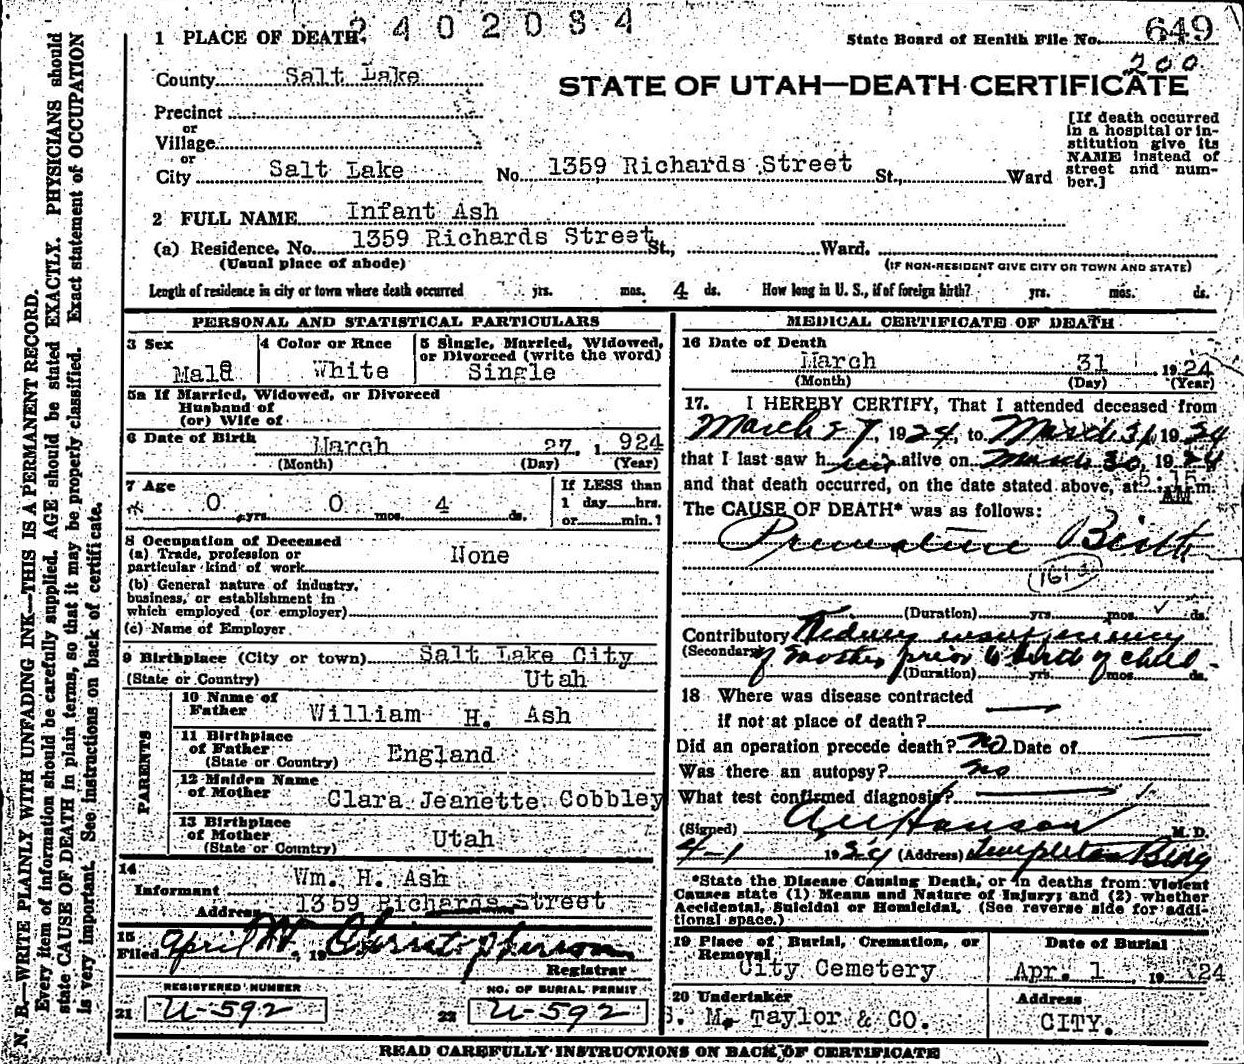 2402084
1 PLACE OF DEATH.
State Board of Health File No. 649
200
County Salt Lake
STATE OF UTAH—DEATH CERTIFICATE
Precinct
or
Village
or
City Salt Lake No. 1359 Richards Street St., Ward
[If death occurred
in a hospital or in-
stitution give its
NAME instead of
street and num-
ber.]
2 FULL NAME Infant Ash
(a) Residence. No. 1359 Richards Street St., Ward.
(Usual place of abode) (IF NON-RESIDENT GIVE CITY OR TOWN AND STATE)
Length of residence in city or town where death occurred yrs. mos. 4 ds. How long in U. S., if of foreign birth? yrs. mos. ds.
PERSONAL AND STATISTICAL PARTICULARS
3 Sex Male
4 Color or Race White
5 Single, Married, Widowed,
or Divorced (write the word)
Single
5a If Married, Widowed, or Divorced
Husband of
(or) Wife of
6 Date of Birth March 27, 1 924
(Month) (Day) (Year)
7 Age
0 yrs. 0 mos. 4 ds.
If LESS than
1 day hrs.
or min.?
8 Occupation of Deceased
(a) Trade, profession or
particular kind of work None
(b) General nature of industry,
business, or establishment in
which employed (or employer)
(c) Name of Employer
9 Birthplace (City or town) Salt Lake City
(State or Country) Utah
PARENTS
10 Name of
Father William H. Ash
11 Birthplace
of Father England
(State or Country)
12 Maiden Name
of Mother Clara Jeanette Cobbley
13 Birthplace
of Mother Utah
(State or Country)
14
Informant Wm. H. Ash
Address 1359 Richards Street
15
Filed April 19
Registrar
REGISTERED NUMBER
21 U-592
NO. OF BURIAL PERMIT
22 U-592
MEDICAL CERTIFICATE OF DEATH
16 Date of Death
March 31 1924
(Month) (Day) (Year)
17. I HEREBY CERTIFY, That I attended deceased from
March 27, 1924, to March 31, 1924
that I last saw h alive on March 30, 1924
and that death occurred, on the date stated above, at 5:15 m.
AM
The CAUSE OF DEATH* was as follows:
Premature Birth
(Duration) yrs. mos. ds.
Contributory Kidney insufficiency
(Secondary) of mother prior to birth of child -
(Duration) yrs. mos. ds.
18 Where was disease contracted
if not at place of death?
Did an operation precede death? no Date of
Was there an autopsy? no
What test confirmed diagnosis?
(Signed) Hanson M. D.
4-1 1924 (Address) Templeton Bldg
*State the Disease Causing Death, or in deaths from Violent
Causes state (1) Means and Nature of Injury; and (2) whether
Accidental, Suicidal or Homicidal. (See reverse side for addi-
tional space.)
19 Place of Burial, Cremation, or
Removal
City Cemetery
Date of Burial
Apr. 1 19 24
20 Undertaker
S. M. Taylor & CO.
Address
CITY.
READ CAREFULLY INSTRUCTIONS ON BACK OF CERTIFICATE
N. B.—WRITE PLAINLY WITH UNFADING INK—THIS IS A PERMANENT RECORD.
Every item of information should be carefully supplied. AGE should be stated EXACTLY. PHYSICIANS should
state CAUSE OF DEATH in plain terms, so that it may be properly classified. Exact statement of OCCUPATION
is very important. See instructions on back of certificate.